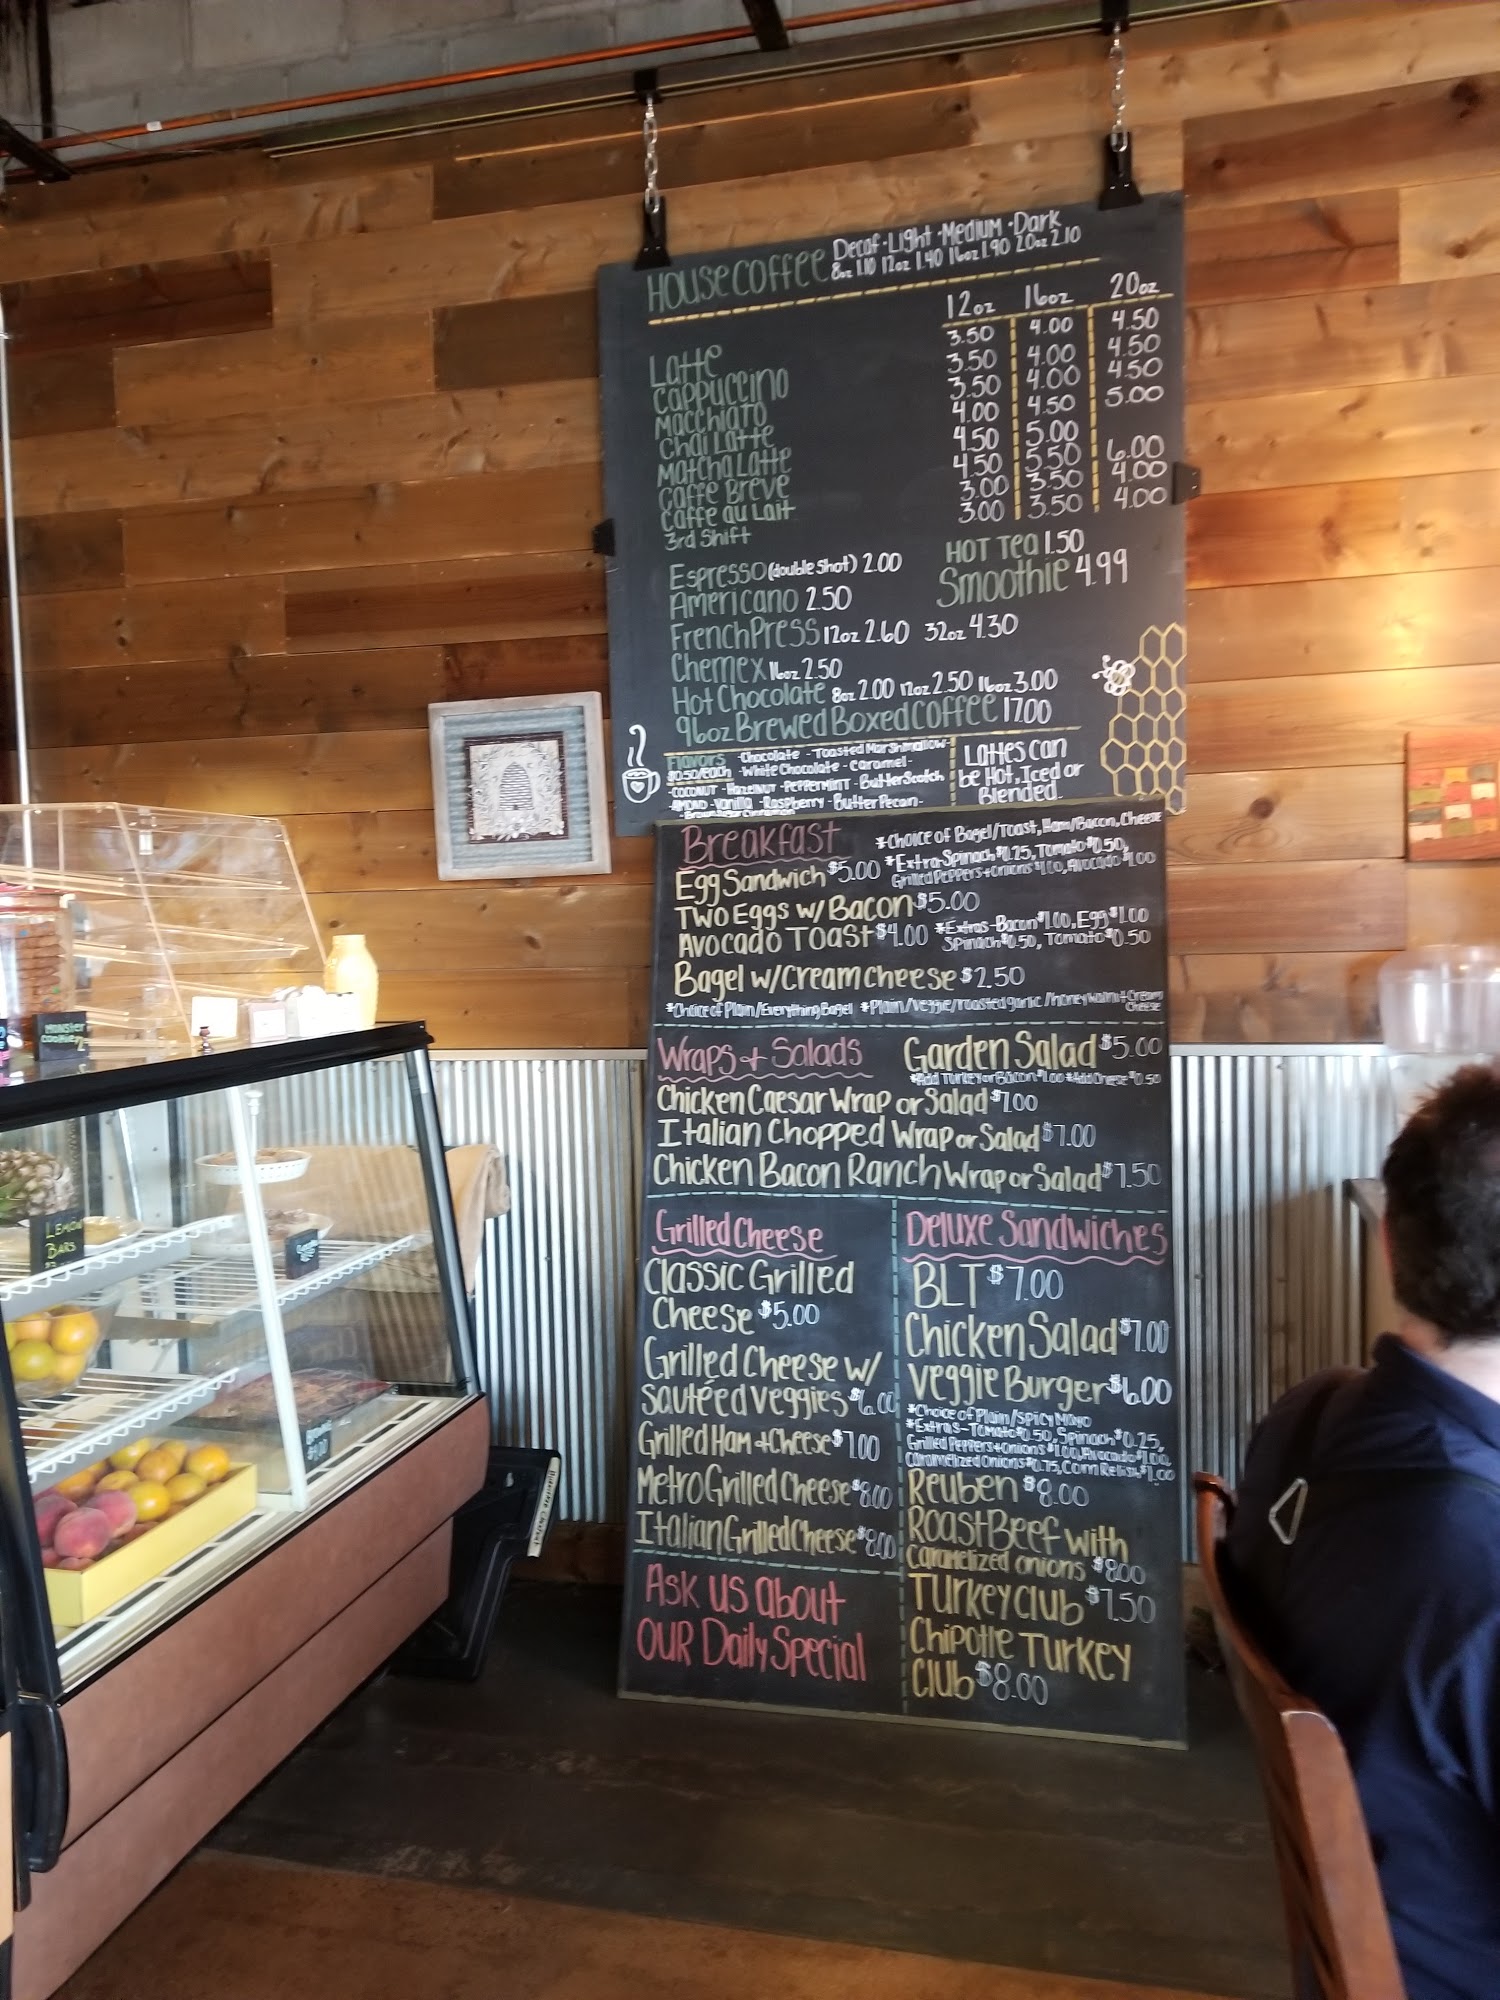 HOUSE COFFEE Decaf · Light · Medium · Dark
8oz 1.10 12oz 1.40 16oz 1.90 20oz 2.10
12oz 16oz 20oz
Latte 3.50 4.00 4.50
Cappuccino 3.50 4.00 4.50
Macchiato 3.50 4.00 4.50
Chai Latte 4.00 4.50 5.00
Matcha Latte 4.50 5.00
Caffe Breve 4.50 5.50 6.00
Caffe au Lait 3.00 3.50 4.00
3rd Shift 3.00 3.50 4.00
Espresso (double shot) 2.00
Americano 2.50
Hot Tea 1.50
Smoothie 4.99
French Press 12oz 2.60 32oz 4.30
Chemex 16oz 2.50
Hot Chocolate 8oz 2.00 12oz 2.50 16oz 3.00
96oz Brewed Boxed Coffee 17.00
Flavors - Chocolate - Toasted Marshmallow -
$0.50/each - White Chocolate - Caramel -
- Coconut - Hazelnut - Peppermint - Butter Scotch
- Almond - Vanilla - Raspberry - Butter Pecan -
- Brown Sugar Cinnamon
Lattes can
be Hot, Iced or
Blended.
Breakfast *Choice of Bagel/Toast, Ham/Bacon, Cheese
Egg Sandwich $5.00 *Extra-Spinach $0.25, Tomato $0.50,
Grilled Peppers + Onions $1.00, Avocado $1.00
Two Eggs w/ Bacon $5.00
Avocado Toast $4.00 *Extras-Bacon $1.00, Egg $1.00
Spinach $0.50, Tomato $0.50
Bagel w/ Cream Cheese $2.50
*Choice of Plain/Everything Bagel *Plain/Veggie/roasted garlic/honey walnut Cream
Cheese
Wraps + Salads
Garden Salad $5.00
*Add Turkey or Bacon $1.00 *Add Cheese $0.50
Chicken Caesar Wrap or Salad $7.00
Italian Chopped Wrap or Salad $7.00
Chicken Bacon Ranch Wrap or Salad $7.50
Grilled Cheese
Classic Grilled
Cheese $5.00
Grilled Cheese w/
sautéed veggies $6.00
Grilled Ham + Cheese $7.00
Metro Grilled Cheese $8.00
Italian Grilled Cheese $8.00
Ask us about
our Daily Special
Deluxe Sandwiches
BLT $7.00
Chicken Salad $7.00
Veggie Burger $6.00
*Choice of Plain/Spicy Mayo
*Extras-Tomato $0.50, Spinach $0.25,
Grilled Peppers + Onions $1.00, Avocado $1.00,
Caramelized Onions $0.75, Corn Relish $1.00
Reuben $8.00
Roast Beef with
Caramelized onions $8.00
Turkey Club $7.50
Chipotle Turkey
Club $8.00
Monster
Cookie
Lemon
Bars